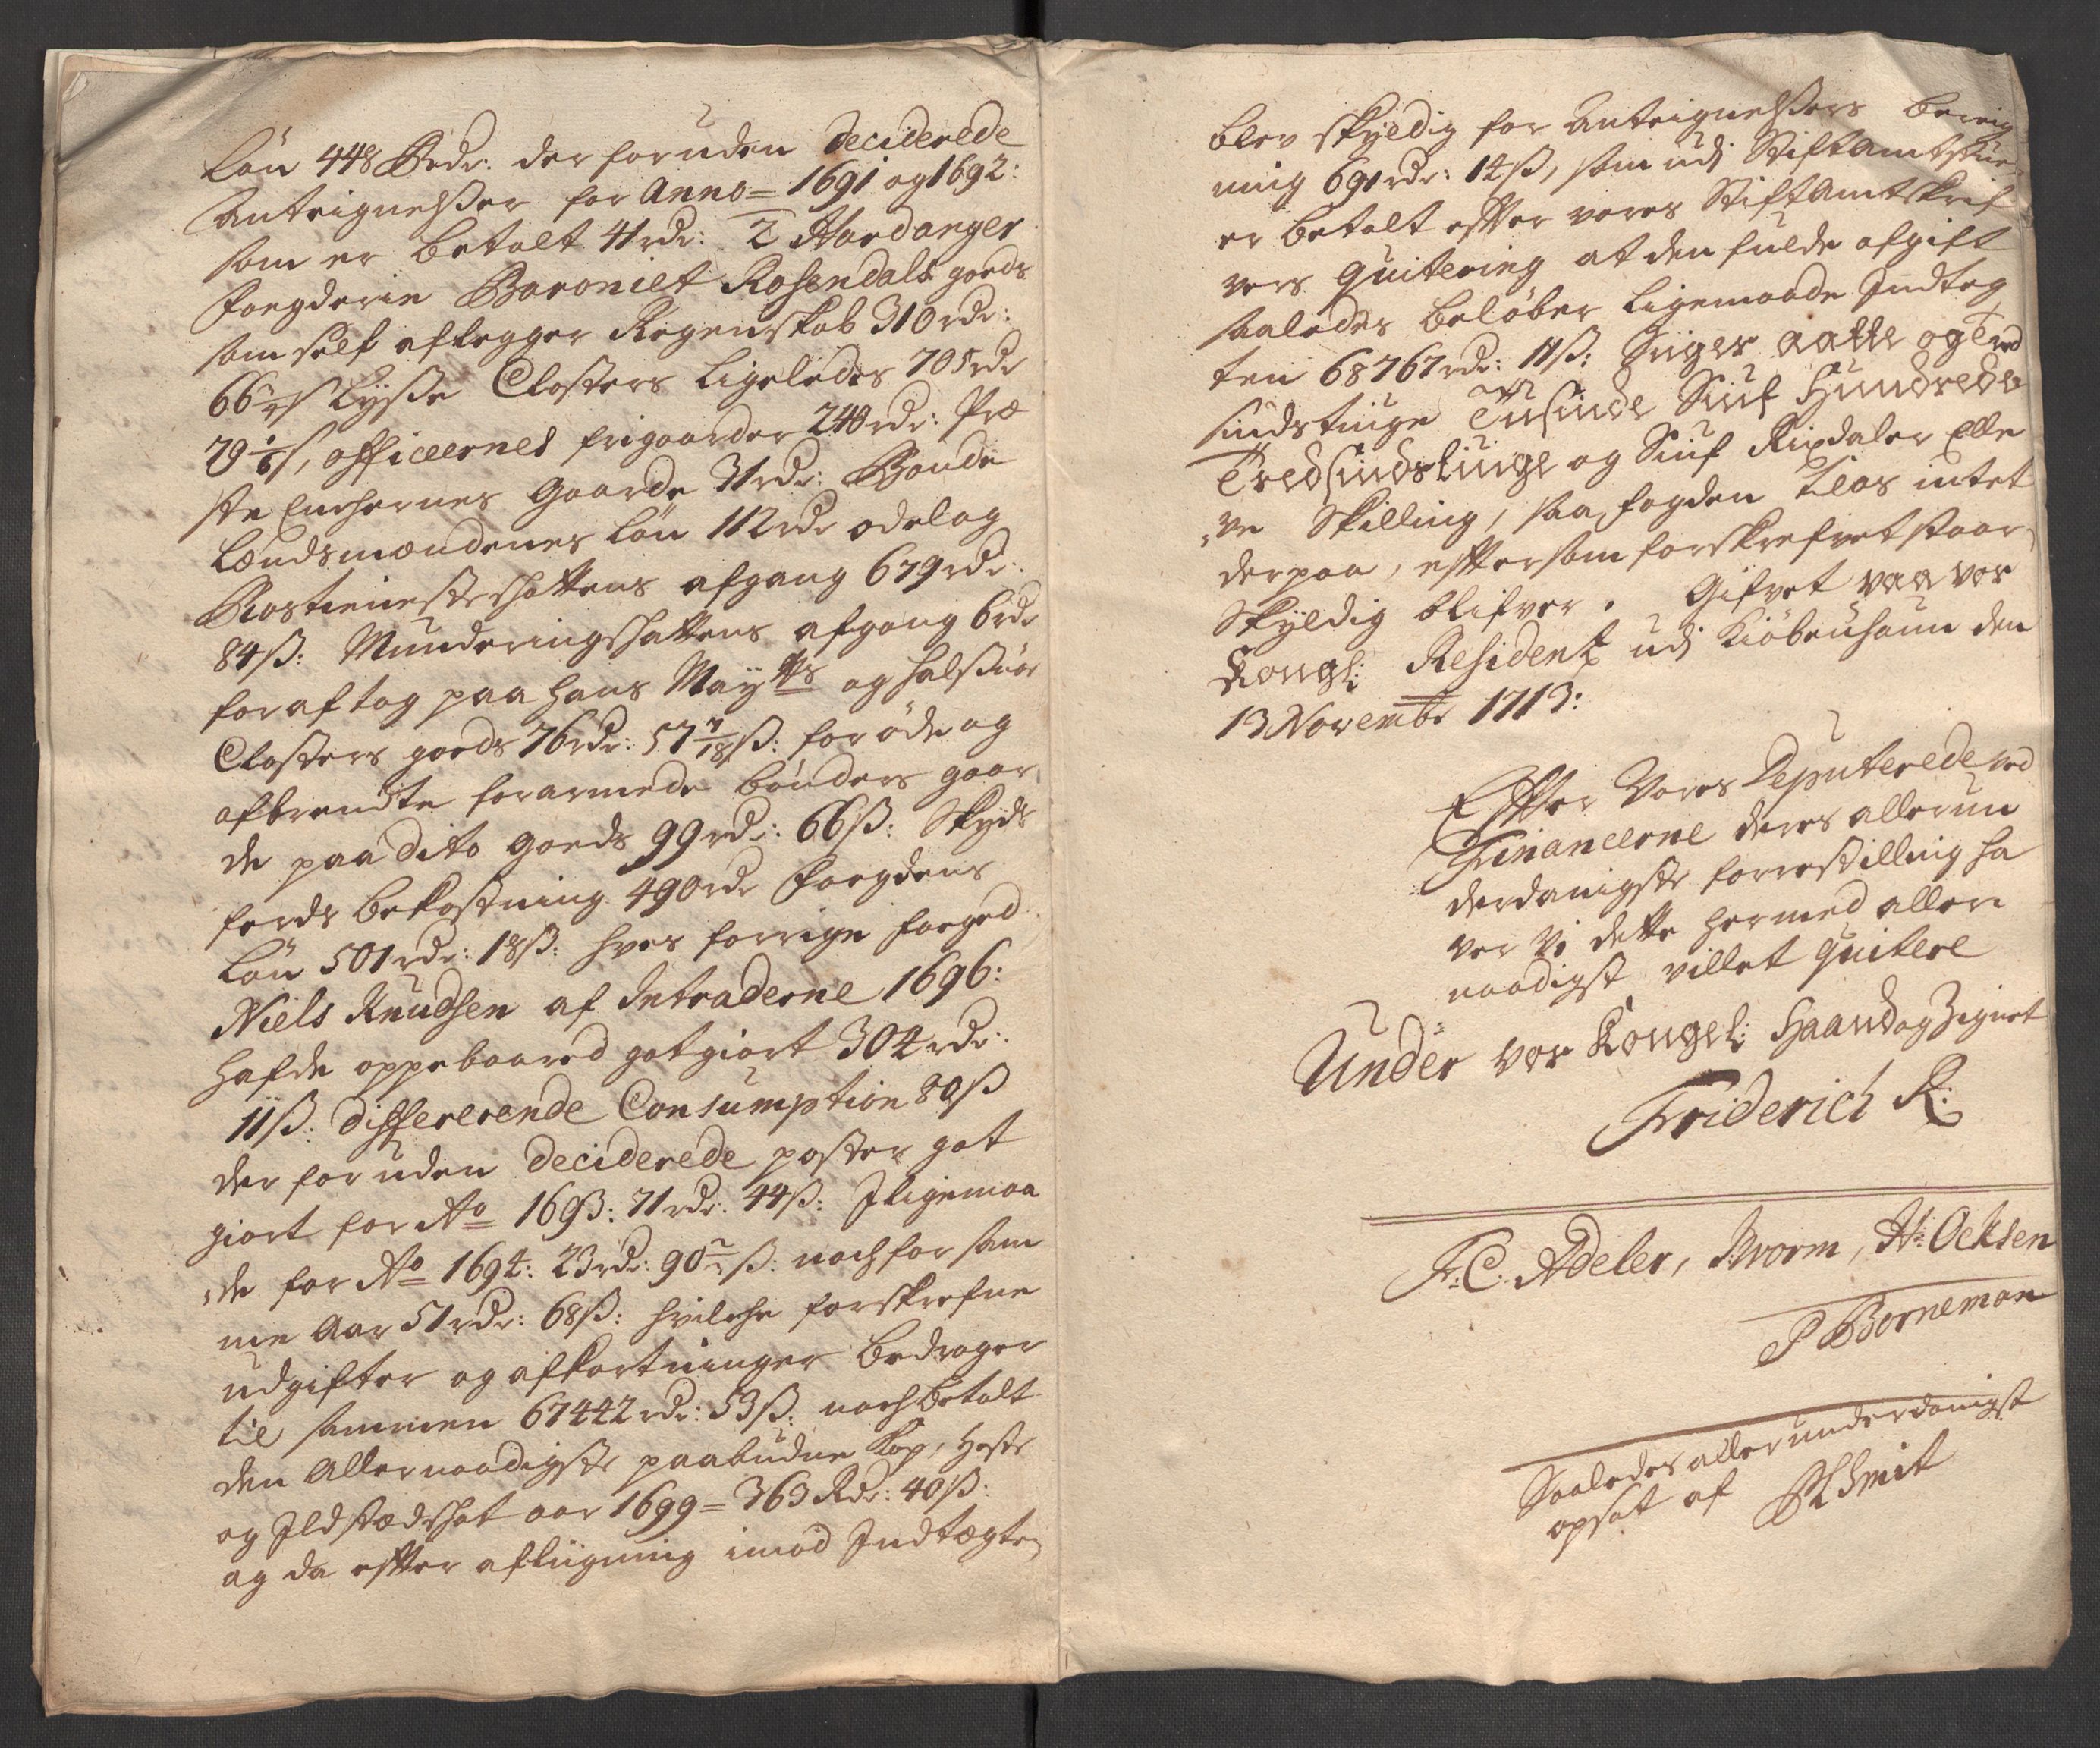 Løn 448 Rdr: der foruden deciderede
Anteignelßer for Anno= 1691 og 1692:
som er betalt 41rdr: I Hardanger
fogderie Baroniet Rosendals goeds
som self aflegger Regenskab 310rdr:
66 ß Lysse Closters ligeledes 705rdr
79 1/6 ß, officeernes frigaarder 240rdr: Præ
ste Enchernes Gaarde 31rdr: Bonde
Lændsmændenes Løn 112rdr odelag
Rostienestes schattens afgang 679rdr:
84ß: Munderingschattens afgang 6rdr
for aftag paa Hans Maytts og Halsnøe
Closters goeds 76rdr: 57 7/18ß: for øde og
afbrendte forarmede bønders gaar,
de paa dito goeds 99rdr: 66ß: Skyds
ferds bekostning 490rdr Fogdens
Løn 501rdr: 18ß: hves forrige foged
Niels Knudsen af Intraderne 1696:
hafde oppebaared got giort 304rdr:
11ß: differerende Consumption 80ß
der foruden deciderede poster got
giort for Ao 1693: 71rdr: 44ß: Iligemaa
„de for Ao 1694: 23rdr: 90 ß: noch for sam
me Aar 51rdr: 68ß: hvilche forskrefne
udgifter og afkortninger bedrager
til sammen 67442rdr: 53ß: noch betalt
den Allernaadigste paabudne Kop, Heste
og Ildstædschat aar 1699= 363Rdr: 40ß:
og da effter afligning imod Indtægten
blev skyldig for Antegnelßers bereig
ning 691rdr: 14ß, som udj Stiftamtstuen
er betalt effter vores Stiftamtskrif
vers Quitering at den fulde afgift
saaledes beløber ligemaade Indteg
ten 68767rdr: 11ß: Siger aatte og Tred
sindstiuge Tusinde Siuf Hundrede
Tredsindstiuge og Siuf Rixdaler Elle
„ve Skilling, saa fogden Klar intet
derpaa, effter som forskrefvet staar
Skyldig blifver. Gifvet paa vor
Kongl: Residentz udj Kiøbenhaun den
13 Novembr 1713:
Effter Vores Deputerede ved
Financerne deres allerun
derdanigste forrestilling ha
ver Vi dette hermed aller
naadigst villet quitere
Under vor Kongel: Haand og Zignet
Friderich R:
Fr: C: Adeler, J Worm, Hr Ocksen
P Borneman
Saaledes allerunderdanigst
opsat af Schmit